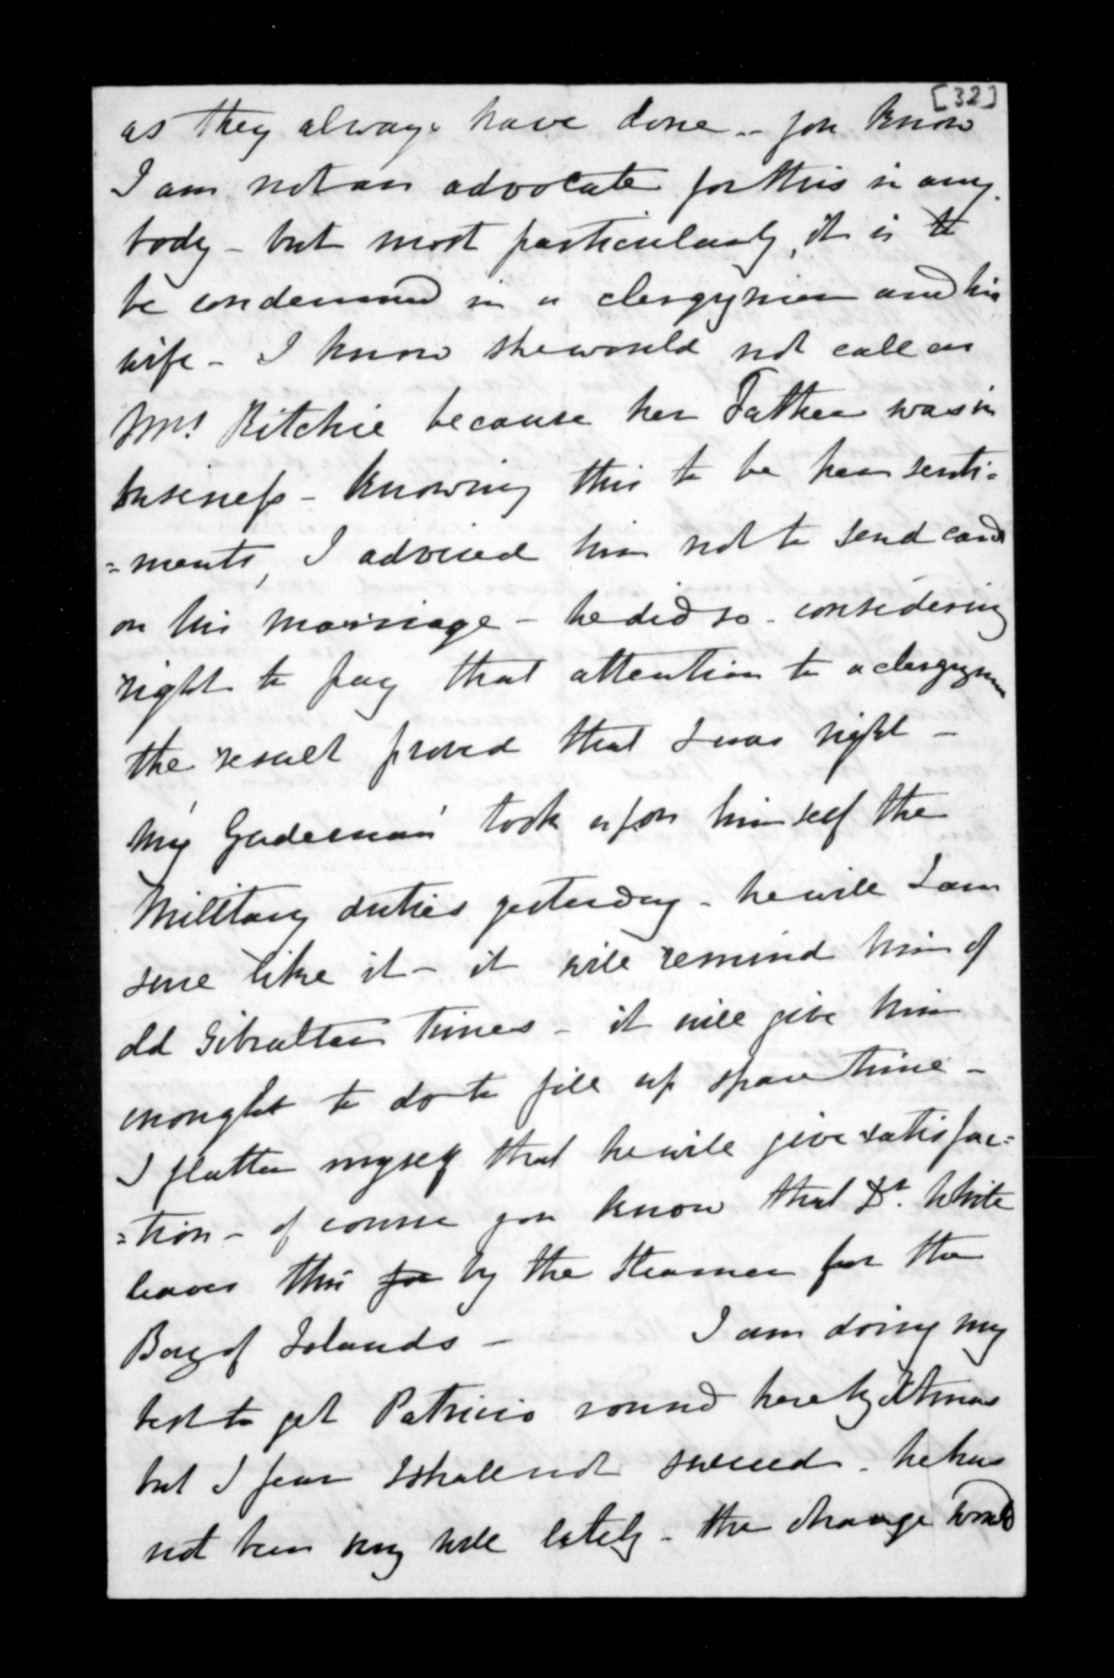 [32]
as they always have done -- you know
I am not an advocate for this in any
body - but most particularly, it is to
be condemned in a clergyman and his
wife - I know she would not call on
Mrs Ritchie because her Father was in
business - knowing this to be her senti=
=ments, I advised him not to send cards
on his marriage - he did so - considering
right to pay that attention to a clergyman
the result proved that I was right -
my 'Gudeman' took upon himself the
Military duties yesterday - he will I am
sure like it - it will remind him of
old Gibraltar times - it will give him
enought to do to fill up spare time -
I flatter myself that he will give satisfac=
=tion - of course you know that Dr. White
leaves this for by the steamer for the
Bay of Islands - I am doing my
best to get Patricio round here by Xtmas
but I fear I shall not succeed - he has
not been very well lately - the change would